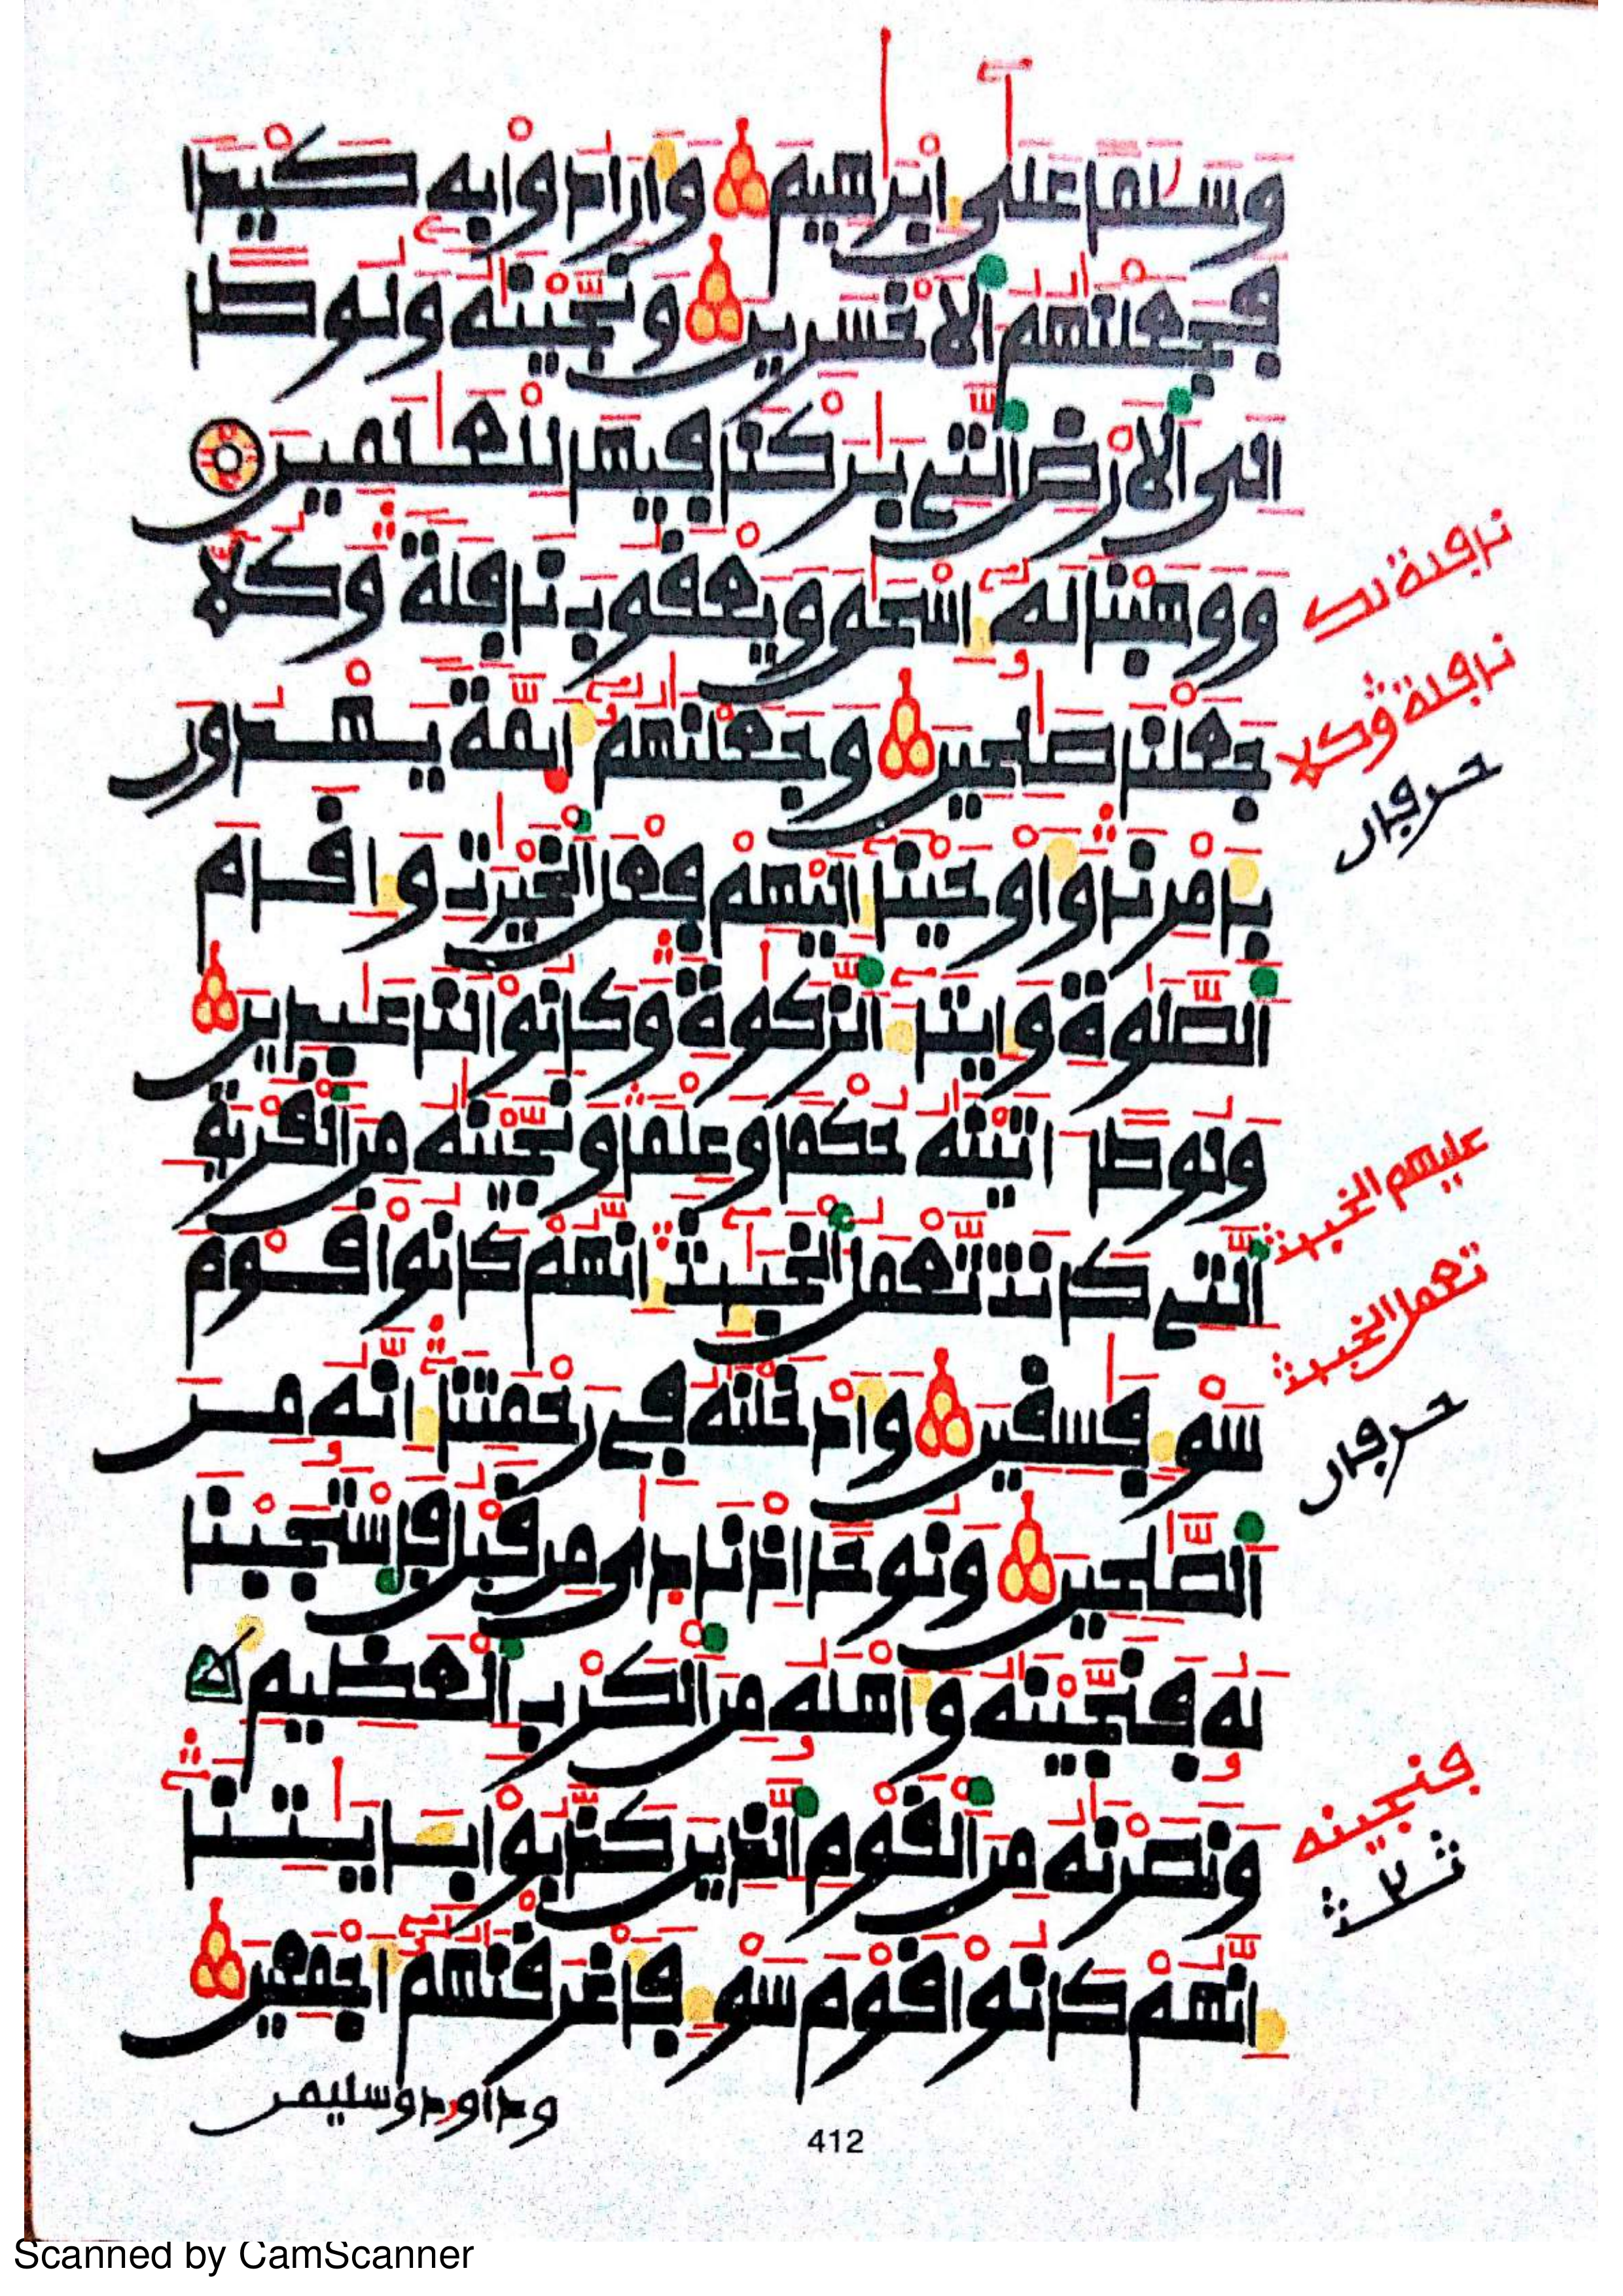 وَسَلَٰمًا عَلَىٰٓ إِبْرَٰهِيمَ وَأَرَادُوا۟ بِهِۦ كَيْدًا
فَجَعَلْنَٰهُمُ ٱلْأَخْسَرِينَ وَنَجَّيْنَٰهُ وَلُوطًا
إِلَى ٱلْأَرْضِ ٱلَّتِى بَٰرَكْنَا فِيهَا لِلْعَٰلَمِينَ
وَوَهَبْنَا لَهُۥٓ إِسْحَٰقَ وَيَعْقُوبَ نَافِلَةً وَكُلًّا
جَعَلْنَا صَٰلِحِينَ وَجَعَلْنَٰهُمُۥٓ أَئِمَّةً يَهْدُونَ
بِأَمْرِنَا وَأَوْحَيْنَا إِلَيْهِمْ فِعْلَ ٱلْخَيْرَٰتِ وَإِقَامَ
ٱلصَّلَوٰةِ وَإِيتَآءَ ٱلزَّكَوٰةِ وَكَانُوا۟ لَنَا عَٰبِدِينَ
وَلُوطًا ءَاتَيْنَٰهُ حُكْمًا وَعِلْمًا وَنَجَّيْنَٰهُ مِنَ ٱلْقَرْيَةِ
ٱلَّتِى كَانَت تَّعْمَلُ ٱلْخَبَٰٓئِثَ إِنَّهُمْ كَانُوا۟ قَوْمَ
سَوْءٍ فَٰسِقِينَ وَأَدْخَلْنَٰهُ فِى رَحْمَتِنَآ إِنَّهُۥ مِنَ
ٱلصَّٰلِحِينَ وَنُوحًا إِذْ نَادَىٰ مِن قَبْلُ فَٱسْتَجَبْنَا
لَهُۥ فَنَجَّيْنَٰهُ وَأَهْلَهُۥ مِنَ ٱلْكَرْبِ ٱلْعَظِيمِ
وَنَصَرْنَٰهُ مِنَ ٱلْقَوْمِ ٱلَّذِينَ كَذَّبُوا۟ بِـَٔايَٰتِنَآ
إِنَّهُمْ كَانُوا۟ قَوْمَ سَوْءٍ فَأَغْرَقْنَٰهُمُۥٓ أَجْمَعِينَ
وداوود وسليمن
412
نافلة وكلا
حرفان
عليهم الخبئث
تعمل الخبئث
حرفان
فنجينه
Scanned by CamScanner